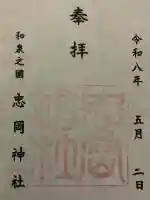 奉拝
令和八年 五月 二日
和泉之國 忠岡神社